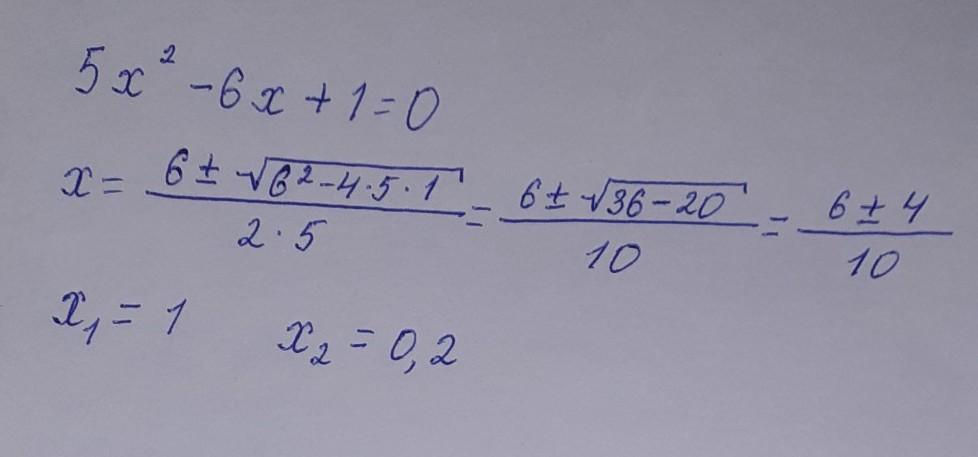 5x² -6x+1=0
x= (6 ± √(6²-4·5·1))/(2·5) = (6 ± √(36-20))/10 = (6 ± 4)/10
x₁ = 1 x₂ = 0,2